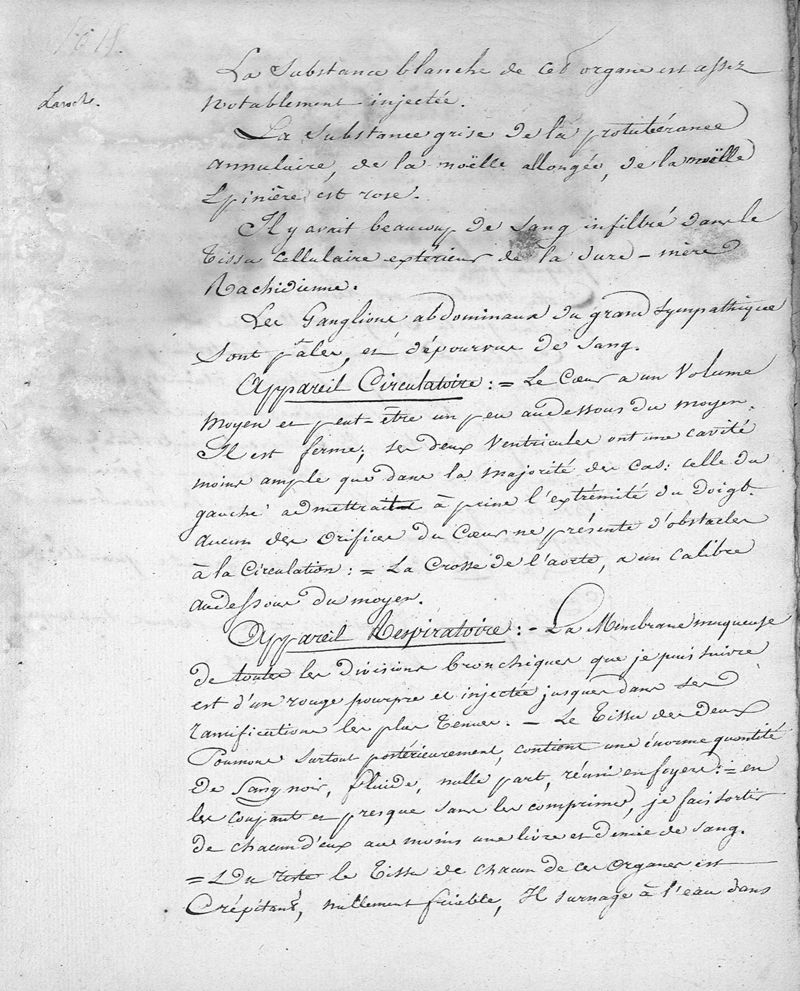 1818.
Laroche.
La Substance blanche de cet organe est assez
notablement injectée.
La Substance grise de la protubérance
annulaire, de la moëlle allongée, de la moëlle
Epinière est rose.
Il y avait beaucoup de Sang infiltré dans le
tissu cellulaire extérieur de la dure-mère
Rachidienne.
Les Ganglions abdominaux du grand Sympathique
Sont pâles, et dépourvus de Sang.
Appareil Circulatoire : = Le Cœur a un Volume
moyen et peut-être un peu audessous du moyen.
Il est ferme; ses deux Ventricules ont une cavité
moins ample que dans la majorité des cas: celle du
gauche admettrait à peine l'extrémité du doigt.
aucun des Orifices du Cœur ne présente d'obstacles
à la Circulation : = La Crosse de l'aorte, a un calibre
audessous du moyen.
Appareil Respiratoire : - La Membrane muqueuse
de toutes les divisions bronchiques que je puis suivre
est d'un rouge pourpre et injectée jusques dans ses
ramifications les plus tenues. - Le tissu des deux
Poumons surtout postérieurement, contient une énorme quantité
de Sang noir, fluide, nulle part, réuni en foyers : = en
les coupant et presque sans les comprimer, je fais sortir
de chacun d'eux au moins une livre et demie de sang.
= Du reste le tissu de chacun de ces Organes est
Crépitant, nullement friable, Il surnage à l'eau dans